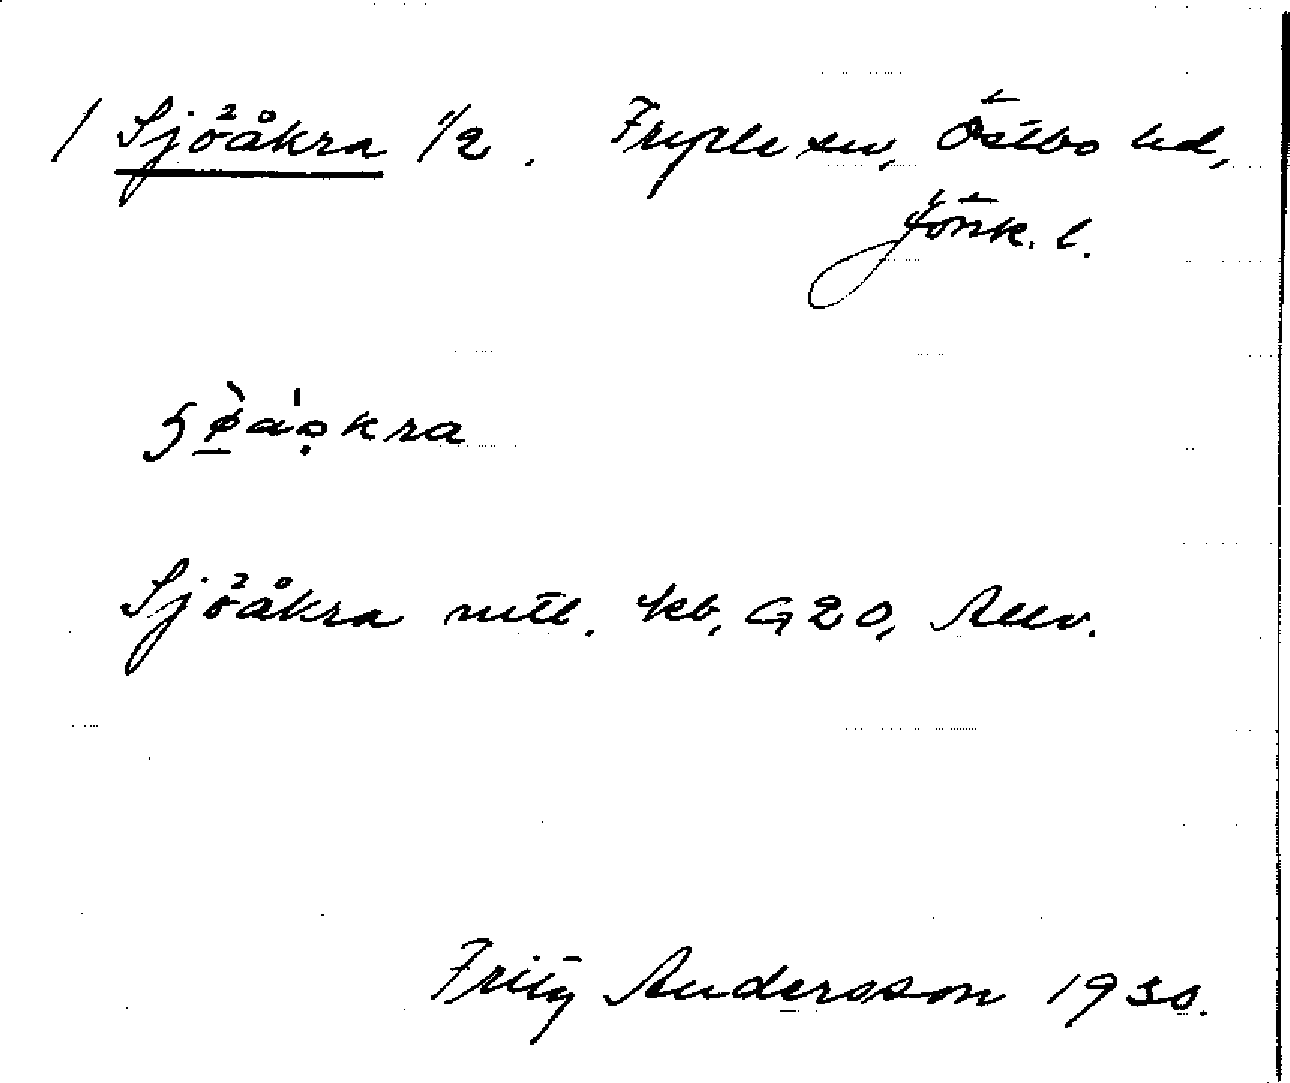 / Sjöåkra 1/2. Fryele sn, Östbo hd,
Jönk. l.
Sjöåkra mtl. kb, G20, Allv.
Fritz Andersson 1930.